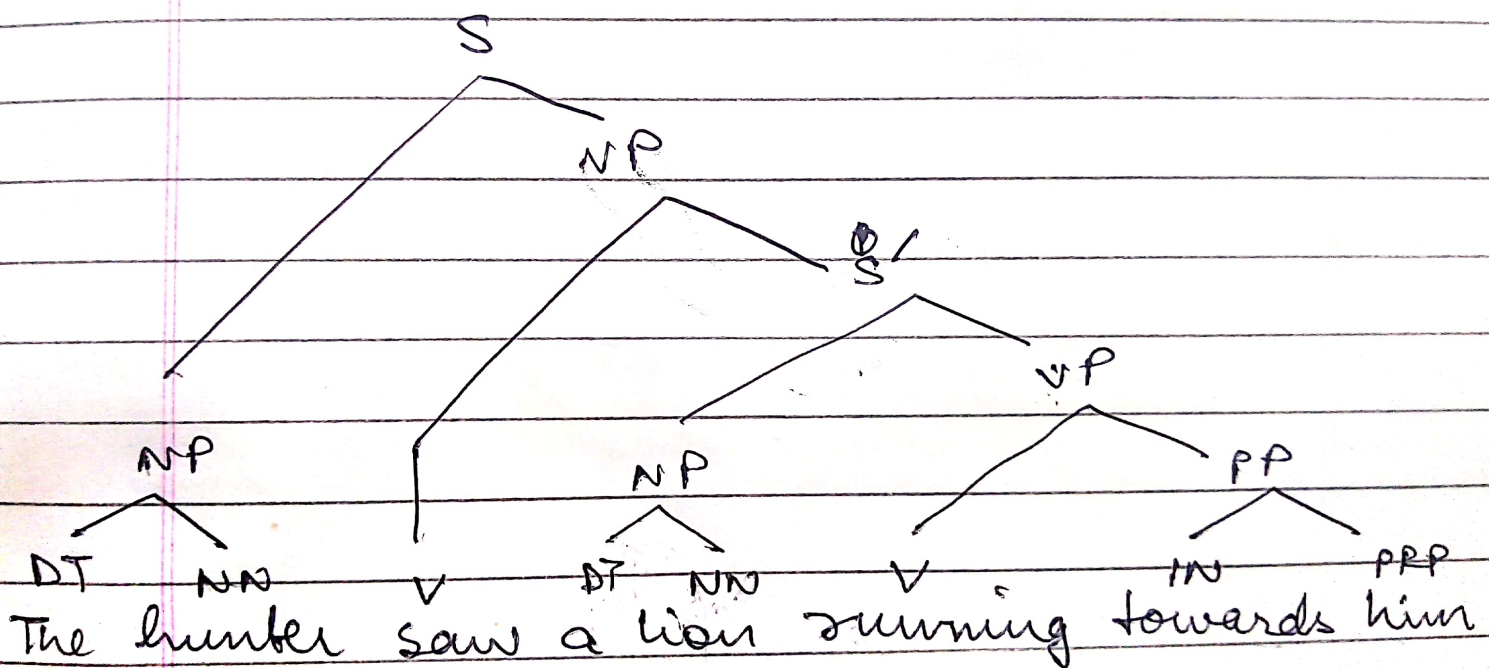 S
NP
S'
VP
NP NP PP
DT NN V DT NN V IN PRP
The hunter saw a lion running towards him